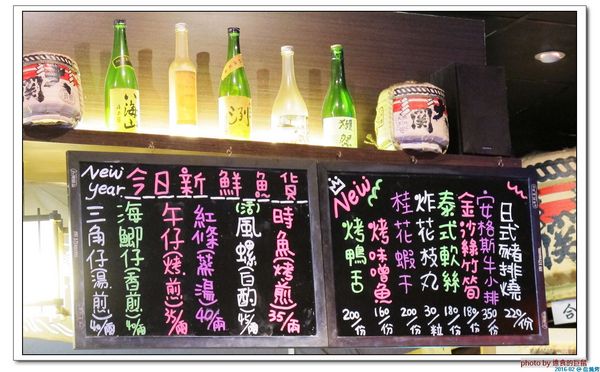 八海山
洌
獺祭
關
New year 今日新鮮魚貨
時魚(烤煎) 35/兩
(活)風螺(白酌) 48/兩
紅條(蒸湯) 40/兩
午仔(烤煎) 35/兩
海鯽仔(香煎)
三角仔(湯煎)
New
日式豬排燒 220/份
安格斯牛小排 350/份
金沙綠竹筍 180/份
泰式軟絲 180/份
炸花枝丸 30/粒
桂花蝦干 200/份
烤味噌魚 160/份
烤鴨舌 200/份
今
photo by 進食的巨館